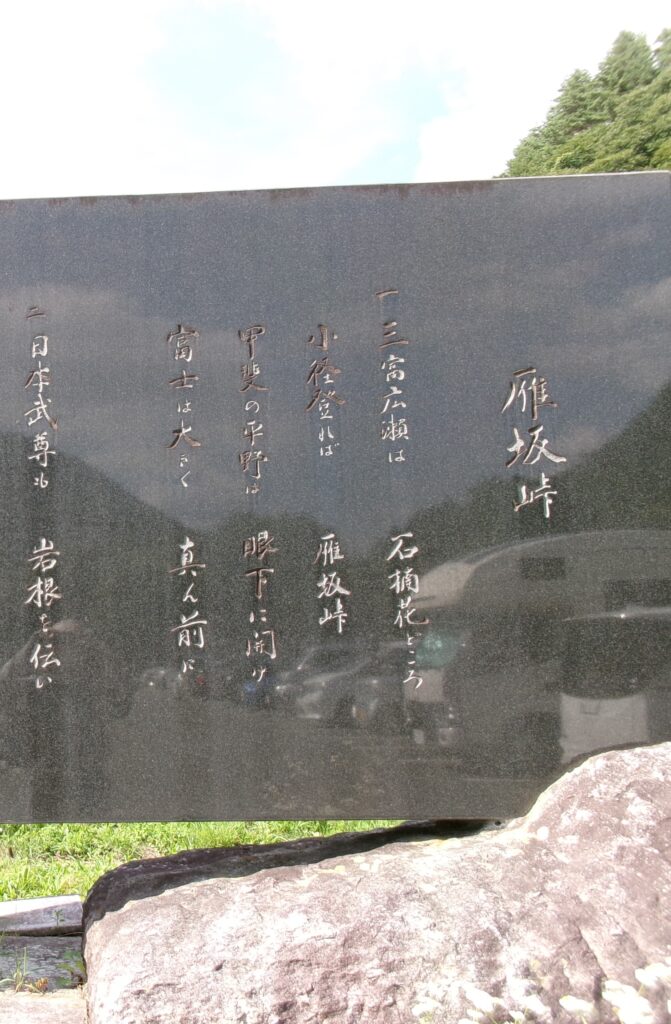 雁坂峠
一 三富広瀬は 石楠花どころ
小径登れば 雁坂峠
甲斐の平野は 眼下に開け
富士は大きく 真ん前に
二 日本武尊も 岩根を伝い